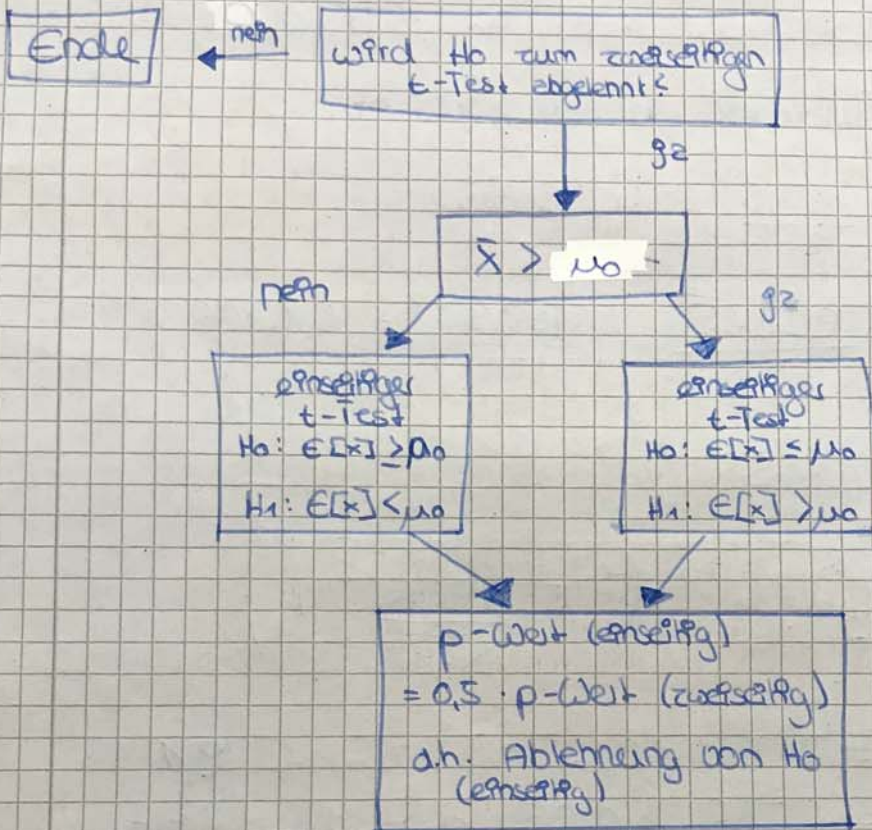 Ende
nein
wird H0 zum zweiseitigen
t-Test abgelehnt?
ja
x̄ > μ0
nein
ja
einseitiger
t-Test
H0: E[x] ≥ μ0
H1: E[x] < μ0
einseitiger
t-Test
H0: E[x] ≤ μ0
H1: E[x] > μ0
p-Wert (einseitig)
= 0,5 · p-Wert (zweiseitig)
d.h. Ablehnung von H0
(einseitig)